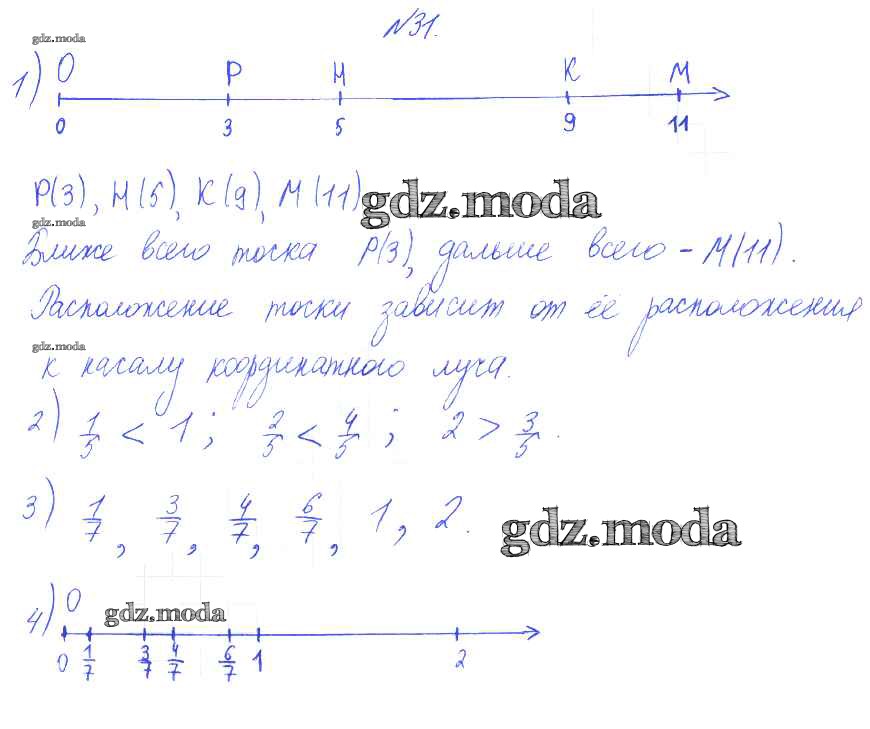 №31.
gdz.moda
1) O P H K M
0 3 5 9 11
P(3), H(5), K(9), M(11)
gdz.moda
gdz.moda
Ближе всего точка P(3), дальше всего - M(11).
Расположение точки зависит от её расположения
gdz.moda
к началу координатного луча.
2) 1/5 < 1; 2/5 < 4/5; 2 > 3/5.
3) 1/7, 3/7, 4/7, 6/7, 1, 2.
gdz.moda
4) O
gdz.moda
0 1/7 3/7 4/7 6/7 1 2